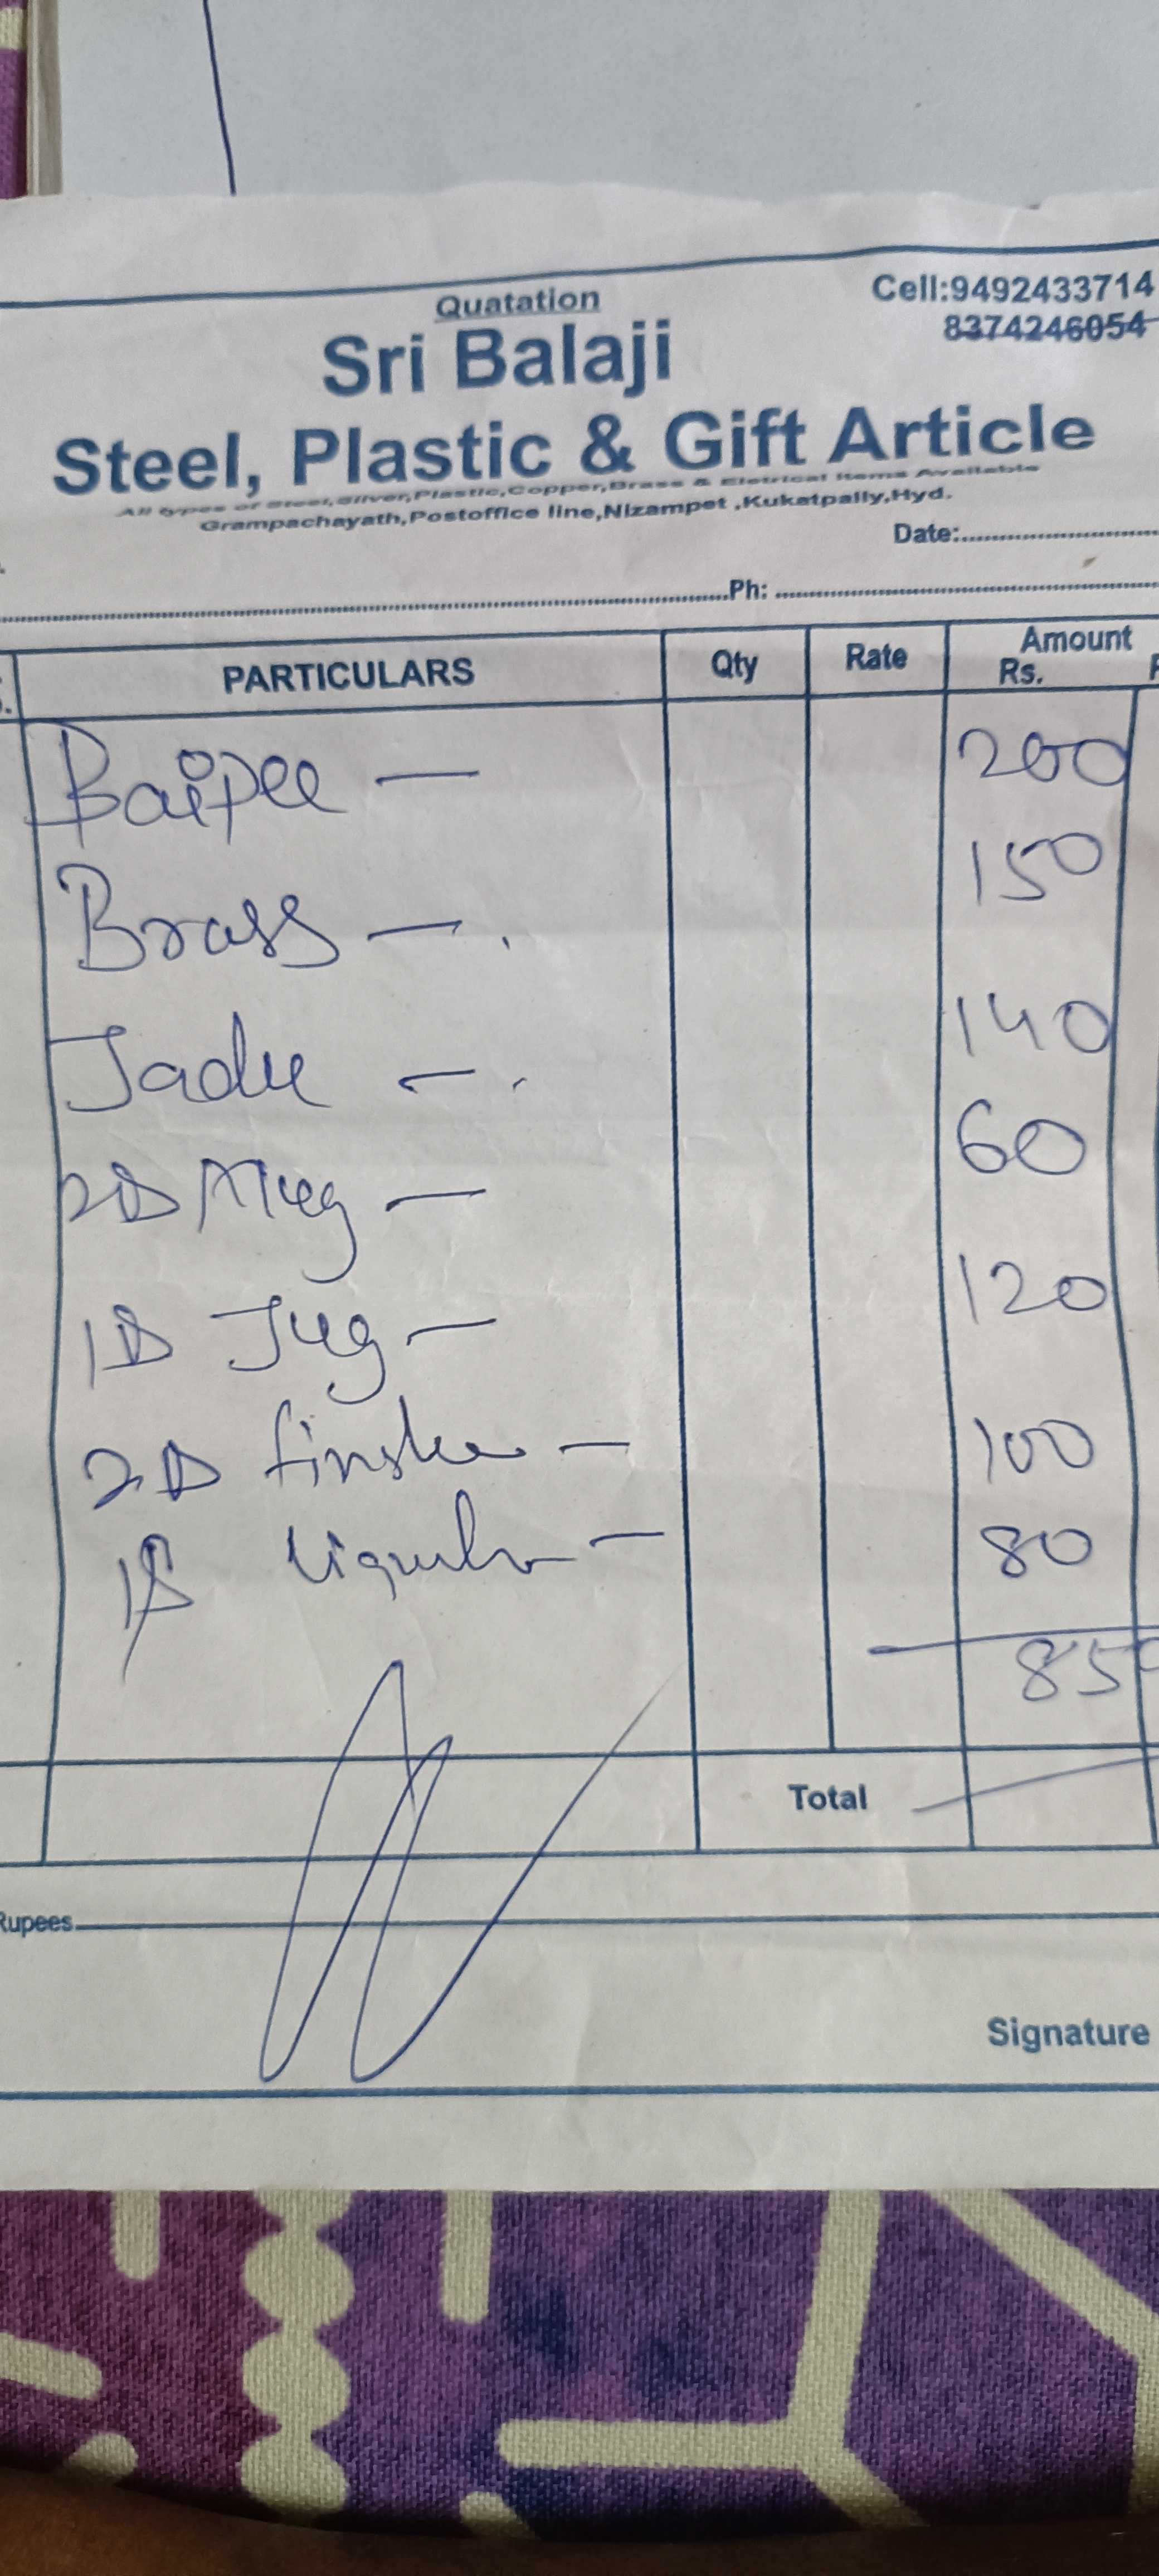 Quatation
Cell:9492433714
8374246054
Sri Balaji
Steel, Plastic & Gift Article
All types of Steel,Silver,Plastic,Copper,Brass & Eletrical Items Available
Grampachayath,Postoffice line,Nizampet ,Kukatpally,Hyd.
Date:
Ph:
PARTICULARS Qty Rate Amount
Rs.
Baipee — 200
Brass — 150
Jadu — 140
2 Mug — 60
1 Jug — 120
2 100
1 80
850
Total
Rupees
Signature